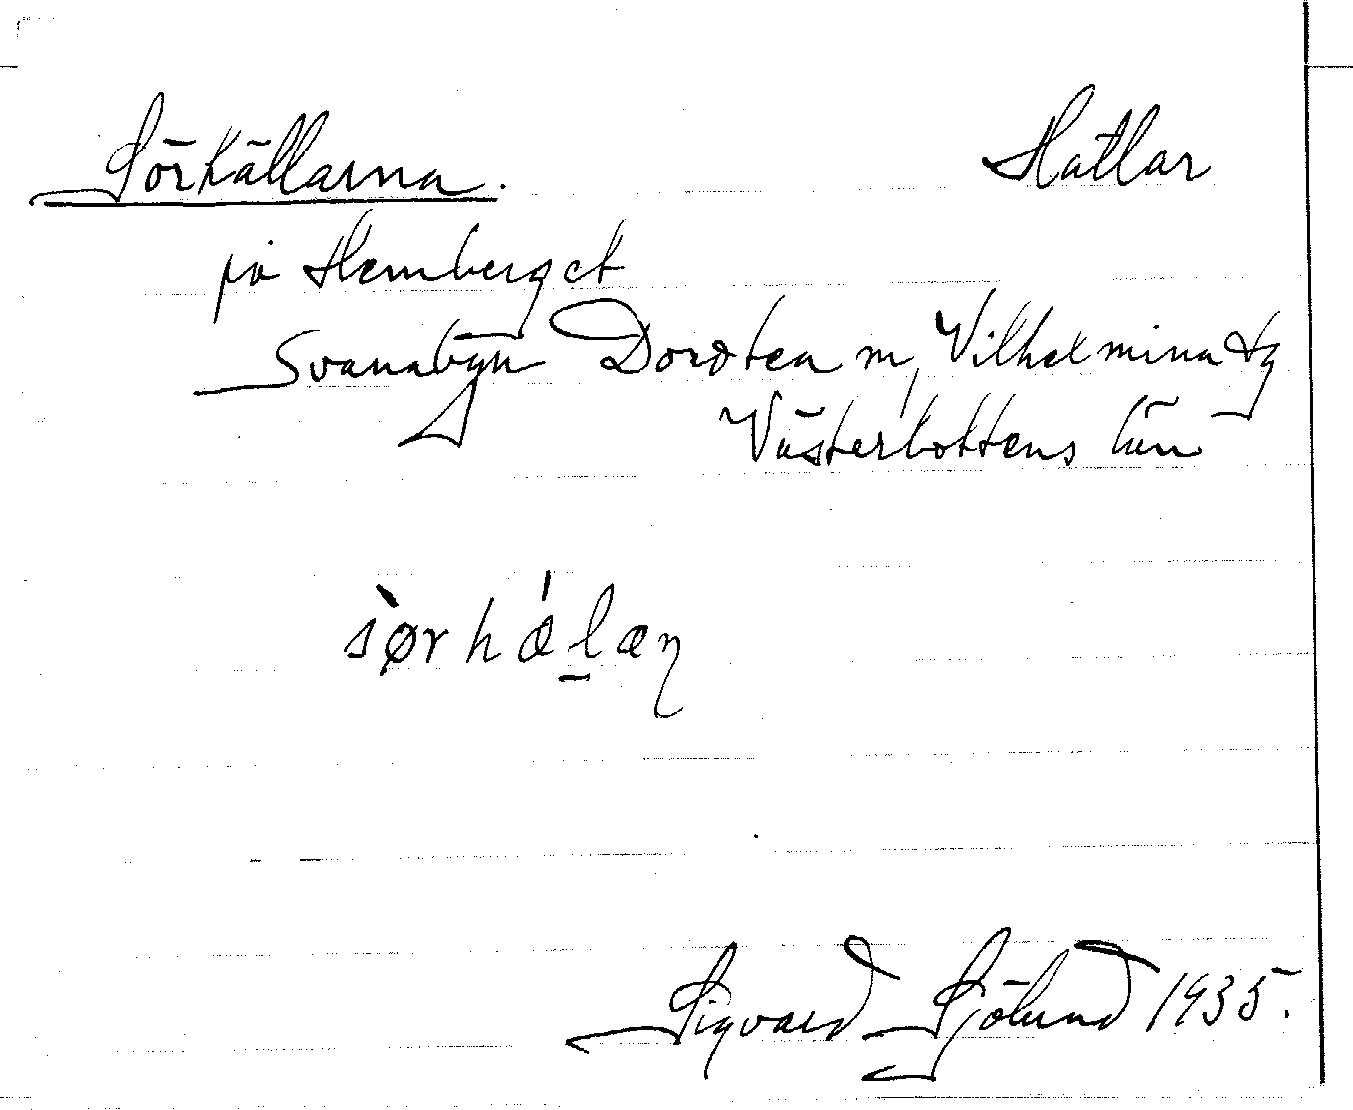 Sörhällarna. Hällar
på Hemberget
Svanabyn Dorotea m, Vilhelmina tg
Västerbottens län
sørhælæɳ
Sigvard Sjölund 1935.